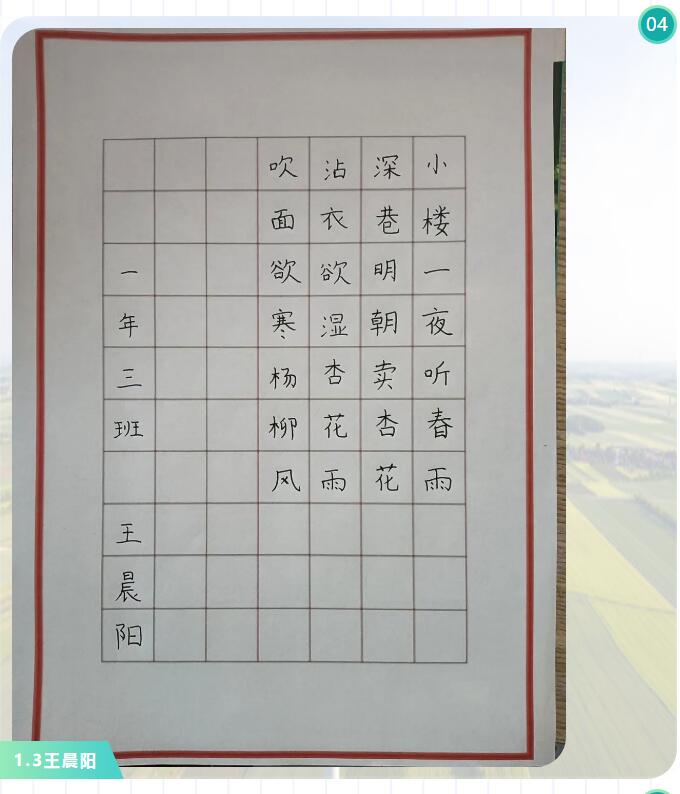 04
小楼一夜听春雨
深巷明朝卖杏花
沾衣欲湿杏花雨
吹面欲寒杨柳风
一年三班 王晨阳
1.3王晨阳